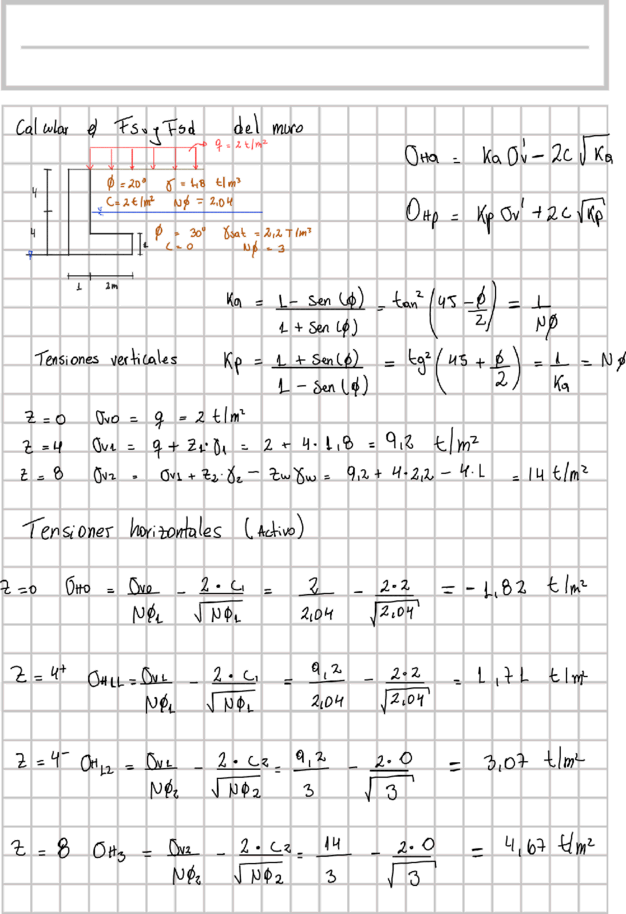 Calcular el FSv y FSd del muro
q = 2 t/m²
σHa = Ka σv' - 2c √Ka
ϕ = 20° γ = 1,8 t/m³
C = 2 t/m² Nϕ = 2,04
σHp = Kp σv' + 2c √Kp
4
4
ϕ = 30° γsat = 2,2 T/m³
C = 0 Nϕ = 3
1 2m
Ka = (1 - sen(ϕ)) / (1 + sen(ϕ)) = tan² (45 - ϕ/2) = 1/Nϕ
Tensiones verticales Kp = (1 + sen(ϕ)) / (1 - sen(ϕ)) = tg² (45 + ϕ/2) = 1/Ka = Nϕ
z=0 σv0 = q = 2 t/m²
z=4 σv1 = q + z1·γ1 = 2 + 4·1,8 = 9,2 t/m²
z=8 σv2 = σv1 + z2·γ2 - zw γw = 9,2 + 4·2,2 - 4·1 = 14 t/m²
Tensiones horizontales (Activo)
z=0 σH0 = σv0/Nϕ1 - 2·c1/√Nϕ1 = 2/2,04 - 2·2/√2,04 = -1,82 t/m²
z=4⁺ σH11 = σv1/Nϕ1 - 2·c1/√Nϕ1 = 9,2/2,04 - 2·2/√2,04 = 1,71 t/m²
z=4⁻ σH12 = σv1/Nϕ2 - 2·c2/√Nϕ2 = 9,2/3 - 2·0/√3 = 3,07 t/m²
z=8 σH3 = σv2/Nϕ2 - 2·c2/√Nϕ2 = 14/3 - 2·0/√3 = 4,67 t/m²